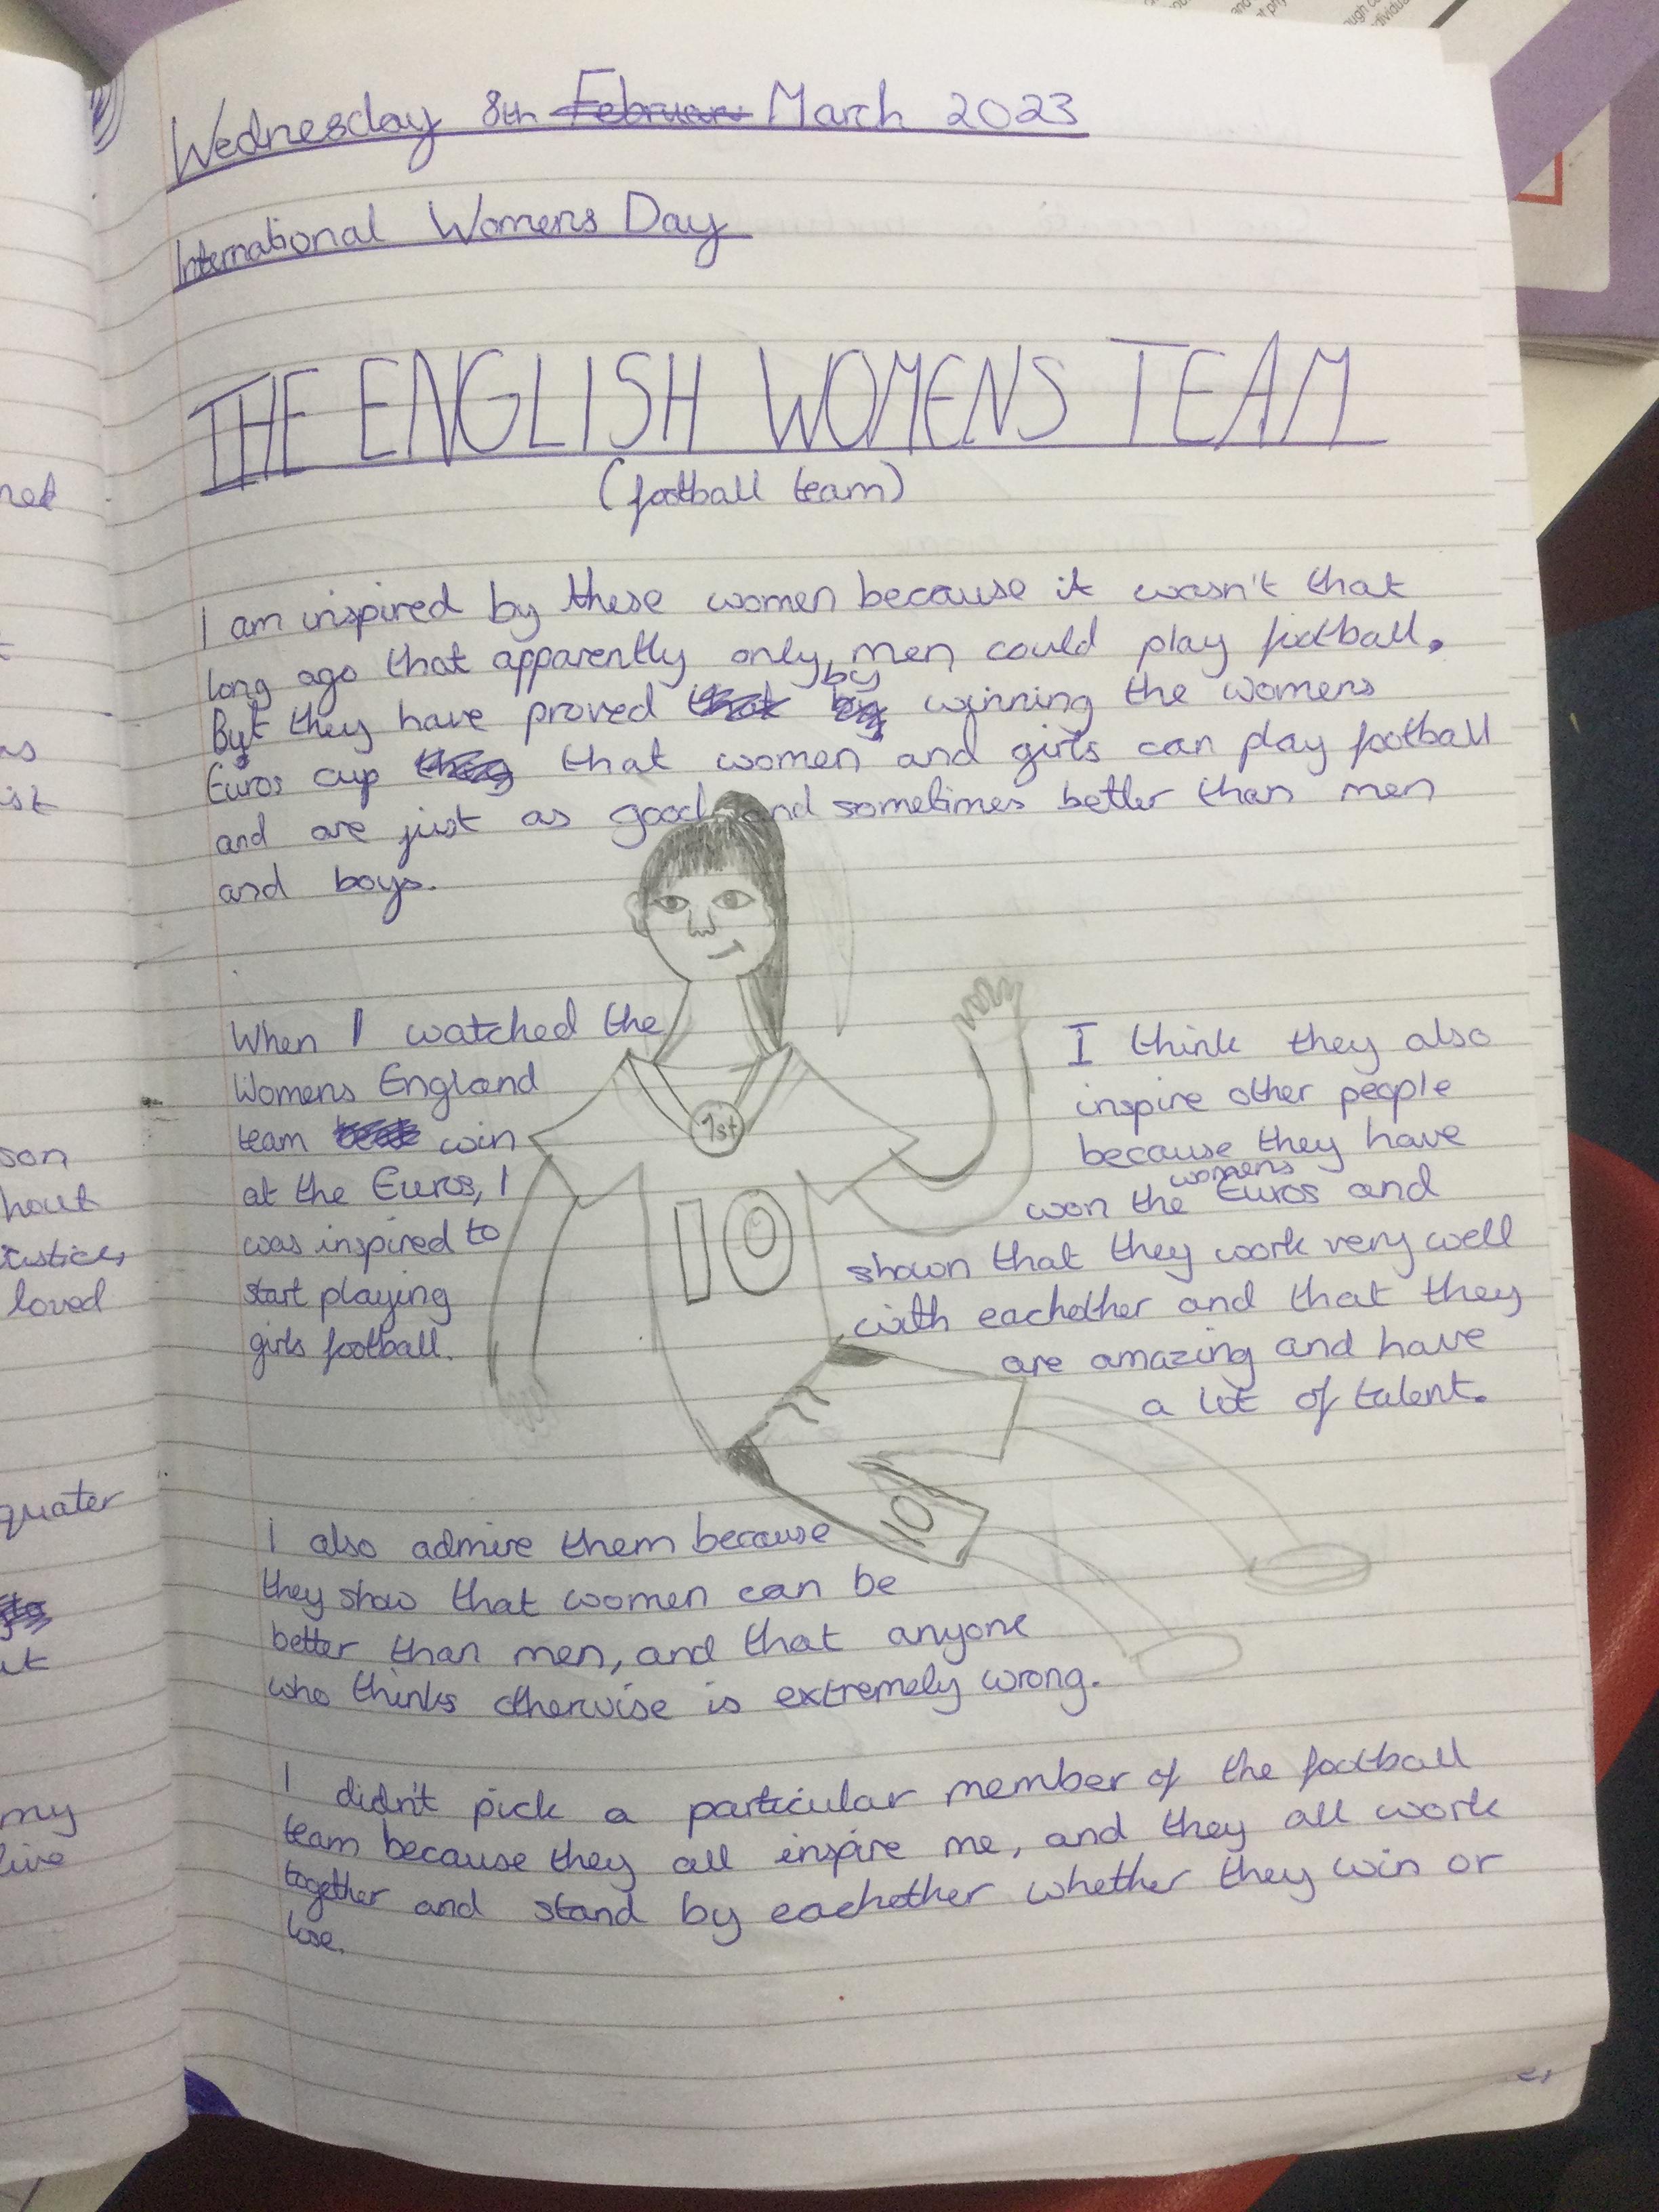 Wednesday 8th Februar March 2023
International Womens Day
THE ENGLISH WOMENS TEAM
(football team)
I am inspired by these women because it wasn't that
long ago that apparently only men could play football.
But they have proved that by by winning the womens
Euros cup they that women and girls can play football
and are just as good, and sometimes better than men
and boys.
When I watched the
Womens England
team win
at the Euros, I
was inspired to
start playing
girls football.
1st
10
I think they also
inspire other people
because they have
won the womens Euros and
shown that they work very well
with eachother and that they
are amazing and have
a lot of talent.
10
I also admire them because
they show that women can be
better than men, and that anyone
who thinks otherwise is extremely wrong.
I didn't pick a particular member of the football
team because they all inspire me, and they all work
together and stand by eachother whether they win or
lose.
son
hout
loved
quater
my